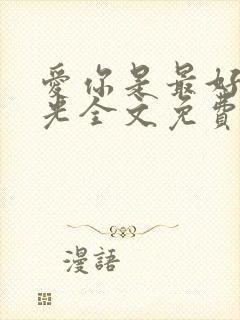 愛你是最好
光全文免費
漫語